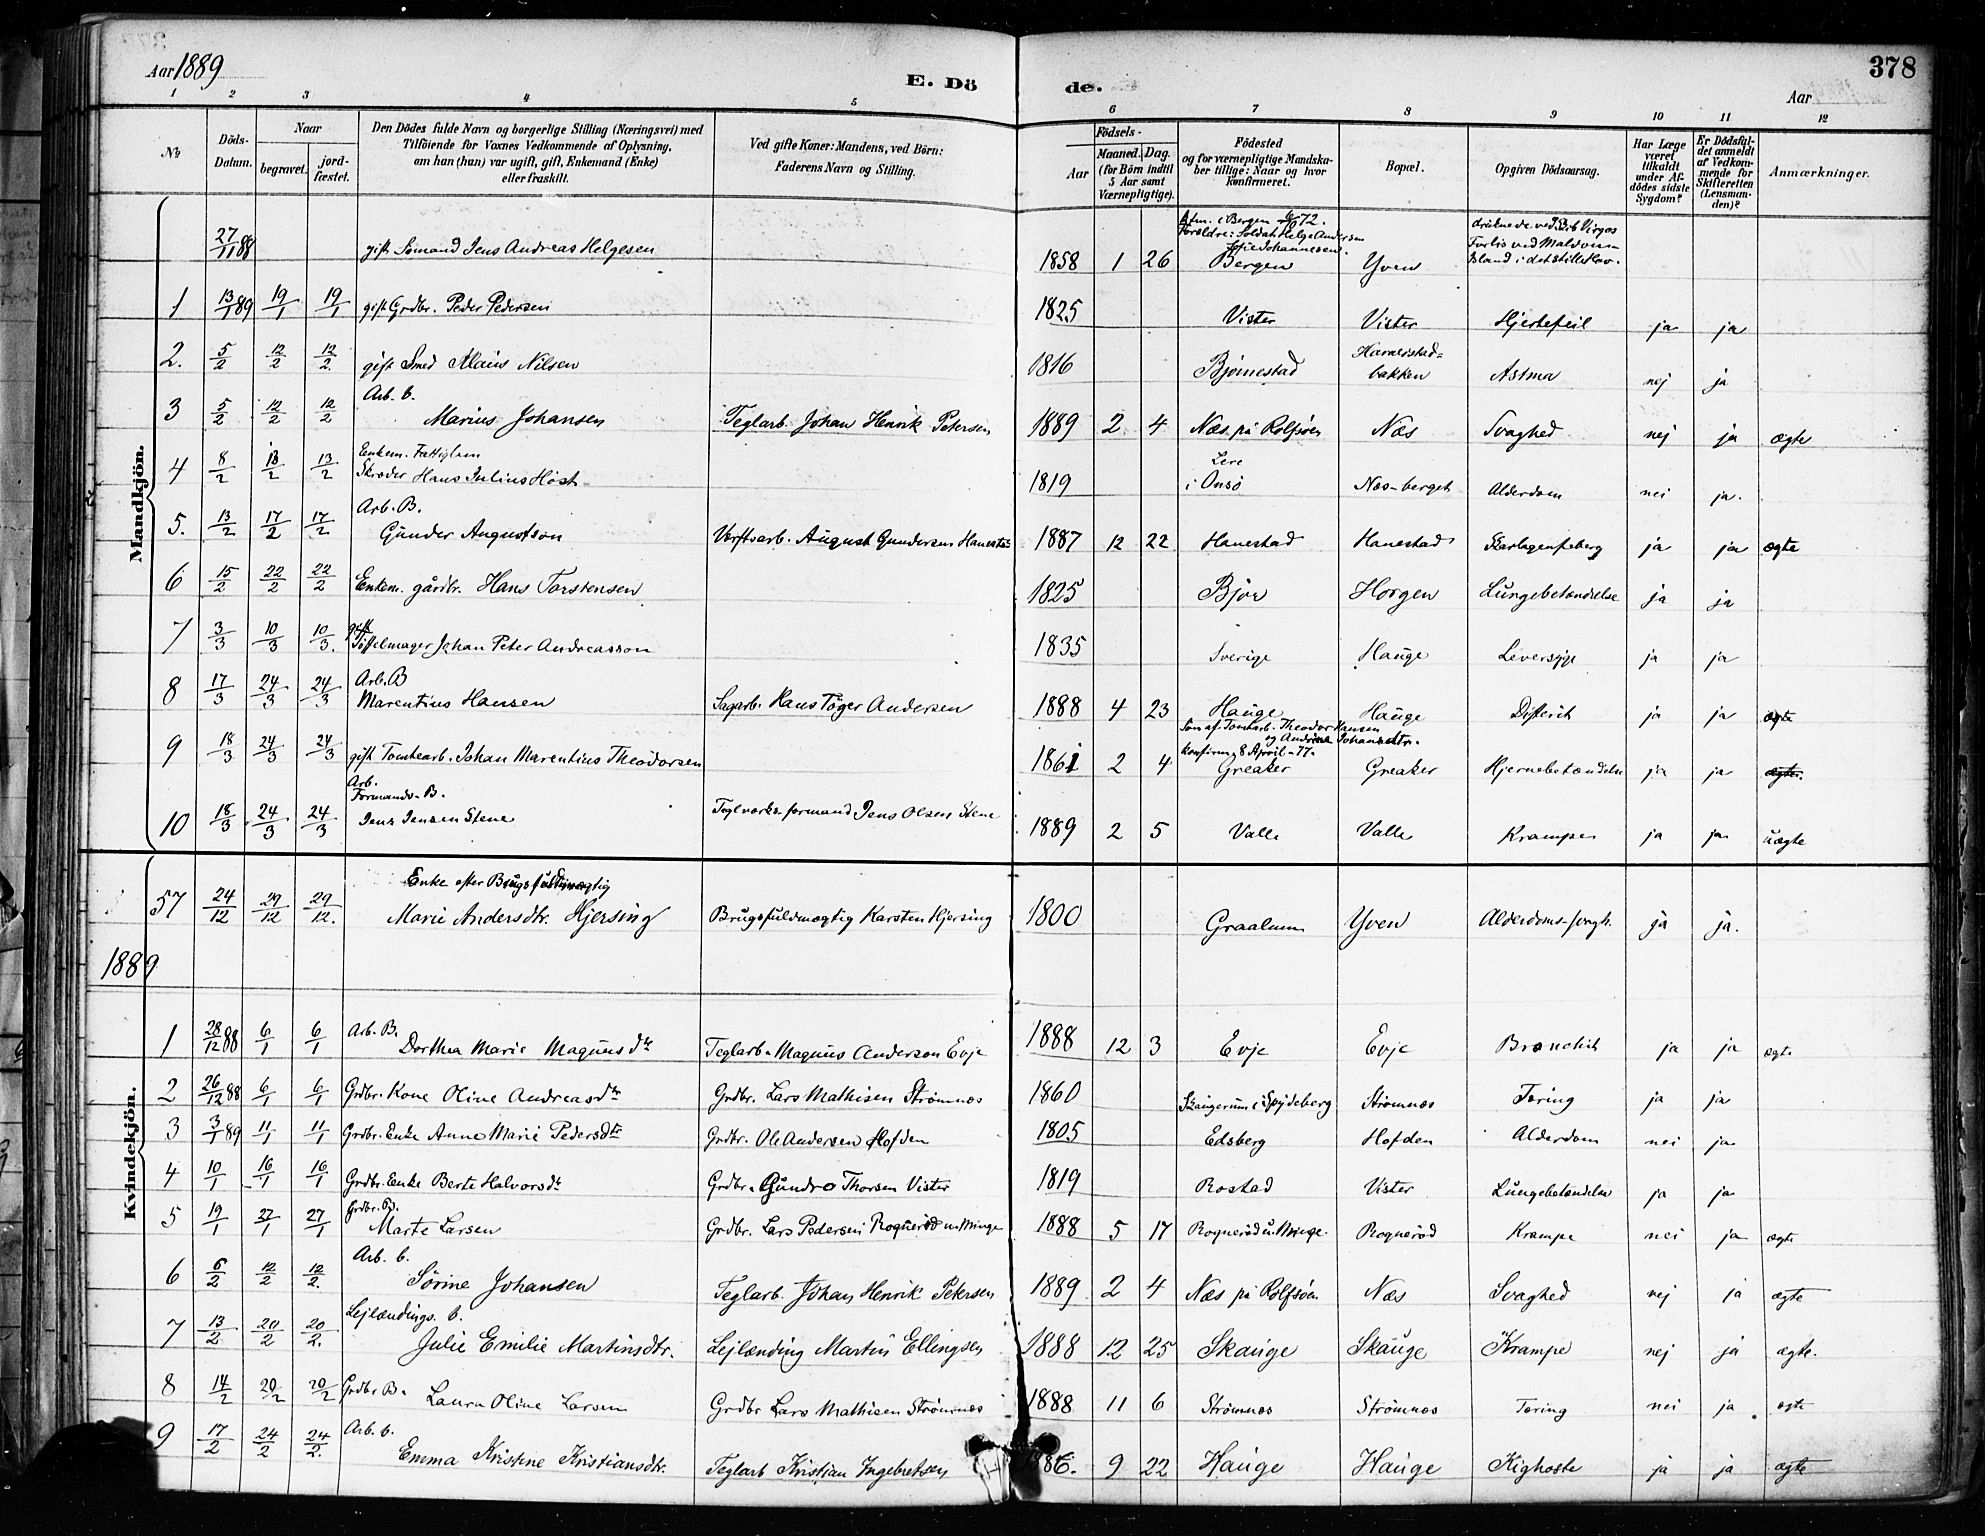 Aar 1889
E. Dö
de.
378
Aar
1 2 3 4 5 6 7 8 9 10 11 12
No
Döds-Datum.
Naar
begravet.
jord-fæstet.
Den Dödes fulde Navn og borgerlige Stilling (Næringsvei) med
Tilföiende for Voxnes Vedkommende af Oplysning,
om han (hun) var ugift, gift, Enkemand (Enke)
eller fraskilt.
Ved gifte Koner: Mandens, ved Börn:
Faderens Navn og Stilling.
Födsels-
Aar
Maaned. Dag.
(for Börn indtil
5 Aar samt
Værnepligtige).
Födested
og for værnepligtige Mandska-
ber tillige: Naar og hvor
konfirmeret.
Bopæl.
Opgiven Dödsaarsag.
Har Læge
været
tilkaldt
under Af-
dödes sidste
Sygdom?
Er Dödsfal-
det anmeldt
af Vedkom-
mende for
Skifteretten
(Lensman-
den)?
Anmærkninger.
Mandkjön.
27/11 88 gift Sømand Jens Andreas Helgesen 1858 1 26 Bergen Yven
Forældre: Soldat Helge Andersen
1 13/1 89 19/1 19/1 gift Grdbr. Peder Pedersen 1825 Vister Vister Hjertefeil ja ja
2. 5/2 12/2 12/2 gift Smed Klaus Nilsen 1816 Bjørnestad Haraldstad-bakken Astma nej ja
Arb. b.
3 5/2 12/2 12/2 Marius Johansen Teglarb. Johan Henrik Petersen 1889 2 4 Næs på Rolfsøen Næs Svaghed nej ja ægte
Enkem. Fattiglem
4 8/2 13/2 13/2 Skræder Hans Julius Høst 1819 i Onsö Næs-berget Alderdom nei ja.
Arb. B.
5. 13/2 17/2 17/2 Gunder Augustson Verftsarb. August Gundersen Hanestad 1887 12 22 Hanestad Hanestad Skarlagensfeber ja ja ægte
6 15/2 22/2 22/2 Enkem. gårdbr. Hans Torstensen 1825 Bjør Horgen Lungebetændelse ja ja
gift
7 3/3 10/3 10/3. Tøffelmager Johan Peter Andreasson 1835 Sverige Hauge Leversyge ja ja
Arb. B
8 17/3 24/3 24/3 Marentius Hansen Sagarb. Hans Tøger Andersen 1888 4 23 Hauge Hauge Difterit ja ja ægte
Søn af Tomtearb. Theodor Hansen
konfirm. 8 April -77.
9 18/3 24/3 24/3 gift Tomtearb. Johan Marentius Theodorsen 1861 2 4 Greaker Greaker Hjernebetændelse ja ja ægte.
Arb.
Formands-B.
10 18/3 24/3 24/3 Jens Jensen Stene Teglværks-formand Jens Olsen Stene 1889 2 5 Valle Valle Krampe ja ja uægte
Enke efter Brugsfuldmægtig
57 24/12 29/12 29/12. Marie Andersdtr. Hjersing Brugsfuldmægtig Karsten Hjersing 1800 Graalum Yven ja ja.
1889
Kvindekjön.
Arb. B.
1 28/12 88 6/1 6/1 Dorthea Marie Magnusdtr Teglarb. Magnus Andersen Evje 1888 12 3 Evje Evje Bronchit ja ja ægte
2 26/12 88 6/1 6/1 Grdbr. Kone Oline Andreasdtr Grdbr. Lars Mathisen Strømnæs 1860 Skaugerum i Spydeberg Strømnæs Tæring ja ja
3 3/1 89 11/1 11/1 Grdbr. Enke Anne Marie Pedersdtr Grdbr. Ole Andersen Hofden 1805 Edsberg Hofden Alderdom nei ja
4 10/1 16/1 16/1 Grdbr. Enke Berte Halvorsdtr Grdbr. Gundro Thorsen Vister 1819 Rostad Vister Lungebetændelse ja ja
Grdbr. B.
5 19/1 27/1 27/1 Marte Larsen Grdbr. Lars Pedersen Rognerød u. Minge 1888 5 17 Rognerød u. Minge Rognerød Krampe nei ja ægte
Arb. b.
6 6/2 12/2 12/2. Sørine Johansen Teglarb. Johan Henrik Petersen 1889 2 4 Næs på Rolfsøen Næs Svaghed nej ja ægte
Lejlændings. b.
7 13/2 20/2 20/2. Julie Emilie Martinsdtr. Lejlænding Martin Ellingsen 1888 12 25 Skauge Skauge Krampe nej ja ægte.
Grdbr. B.
8 14/2 20/2 20/2 Laura Oline Larsen Grdbr Lars Mathisen Strømnæs 1888 11 6 Strømnæs Strømnæs Tæring nei ja ægte
Arb. b.
9 17/2 24/2 24/2. Emma Kristine Kristiansdtr. Teglarb Kristian Ingebretsen 1886. 9 22 Hauge Hauge Kighoste ja ja ægte